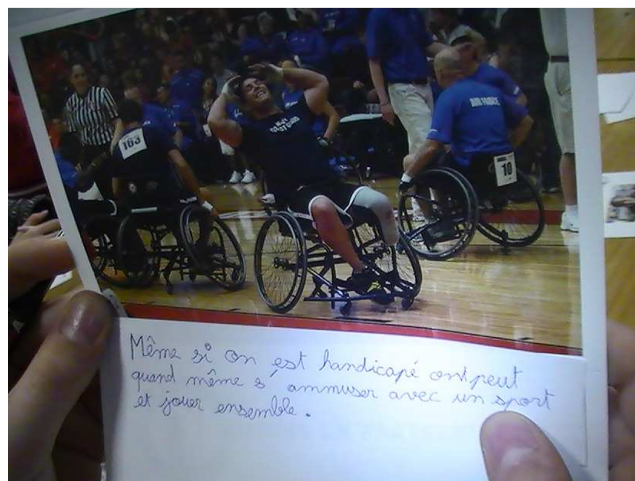 163
AIR FORCE
10
Même si on est handicapé ont peut
quand même s'ammuser avec un sport
et jouer ensemble.